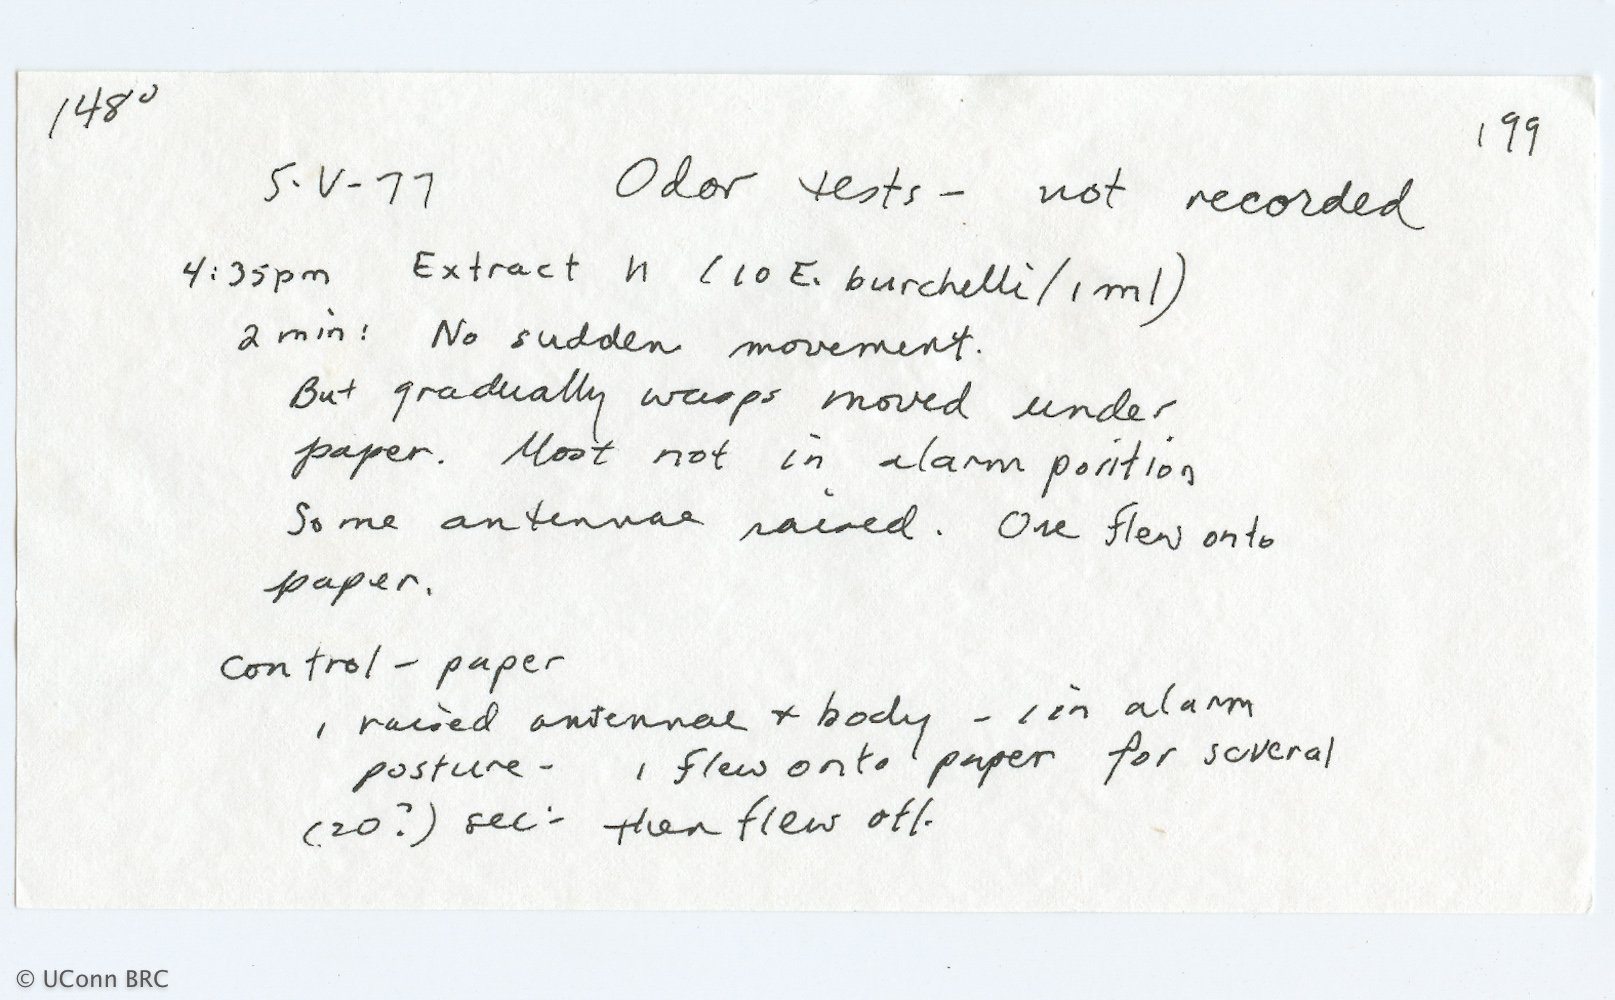 1480
199
5-V-77 Odor tests - not recorded
4:35pm Extract H (10 E. burchelli/1 ml)
2 min: No sudden movement.
But gradually wasps moved under
paper. Most not in alarm position
Some antennae raised. One flew onto
paper.
Control - paper
1 raised antennae + body - 1 in alarm
posture - 1 flew onto paper for several
(20?) sec - then flew off.
© UConn BRC